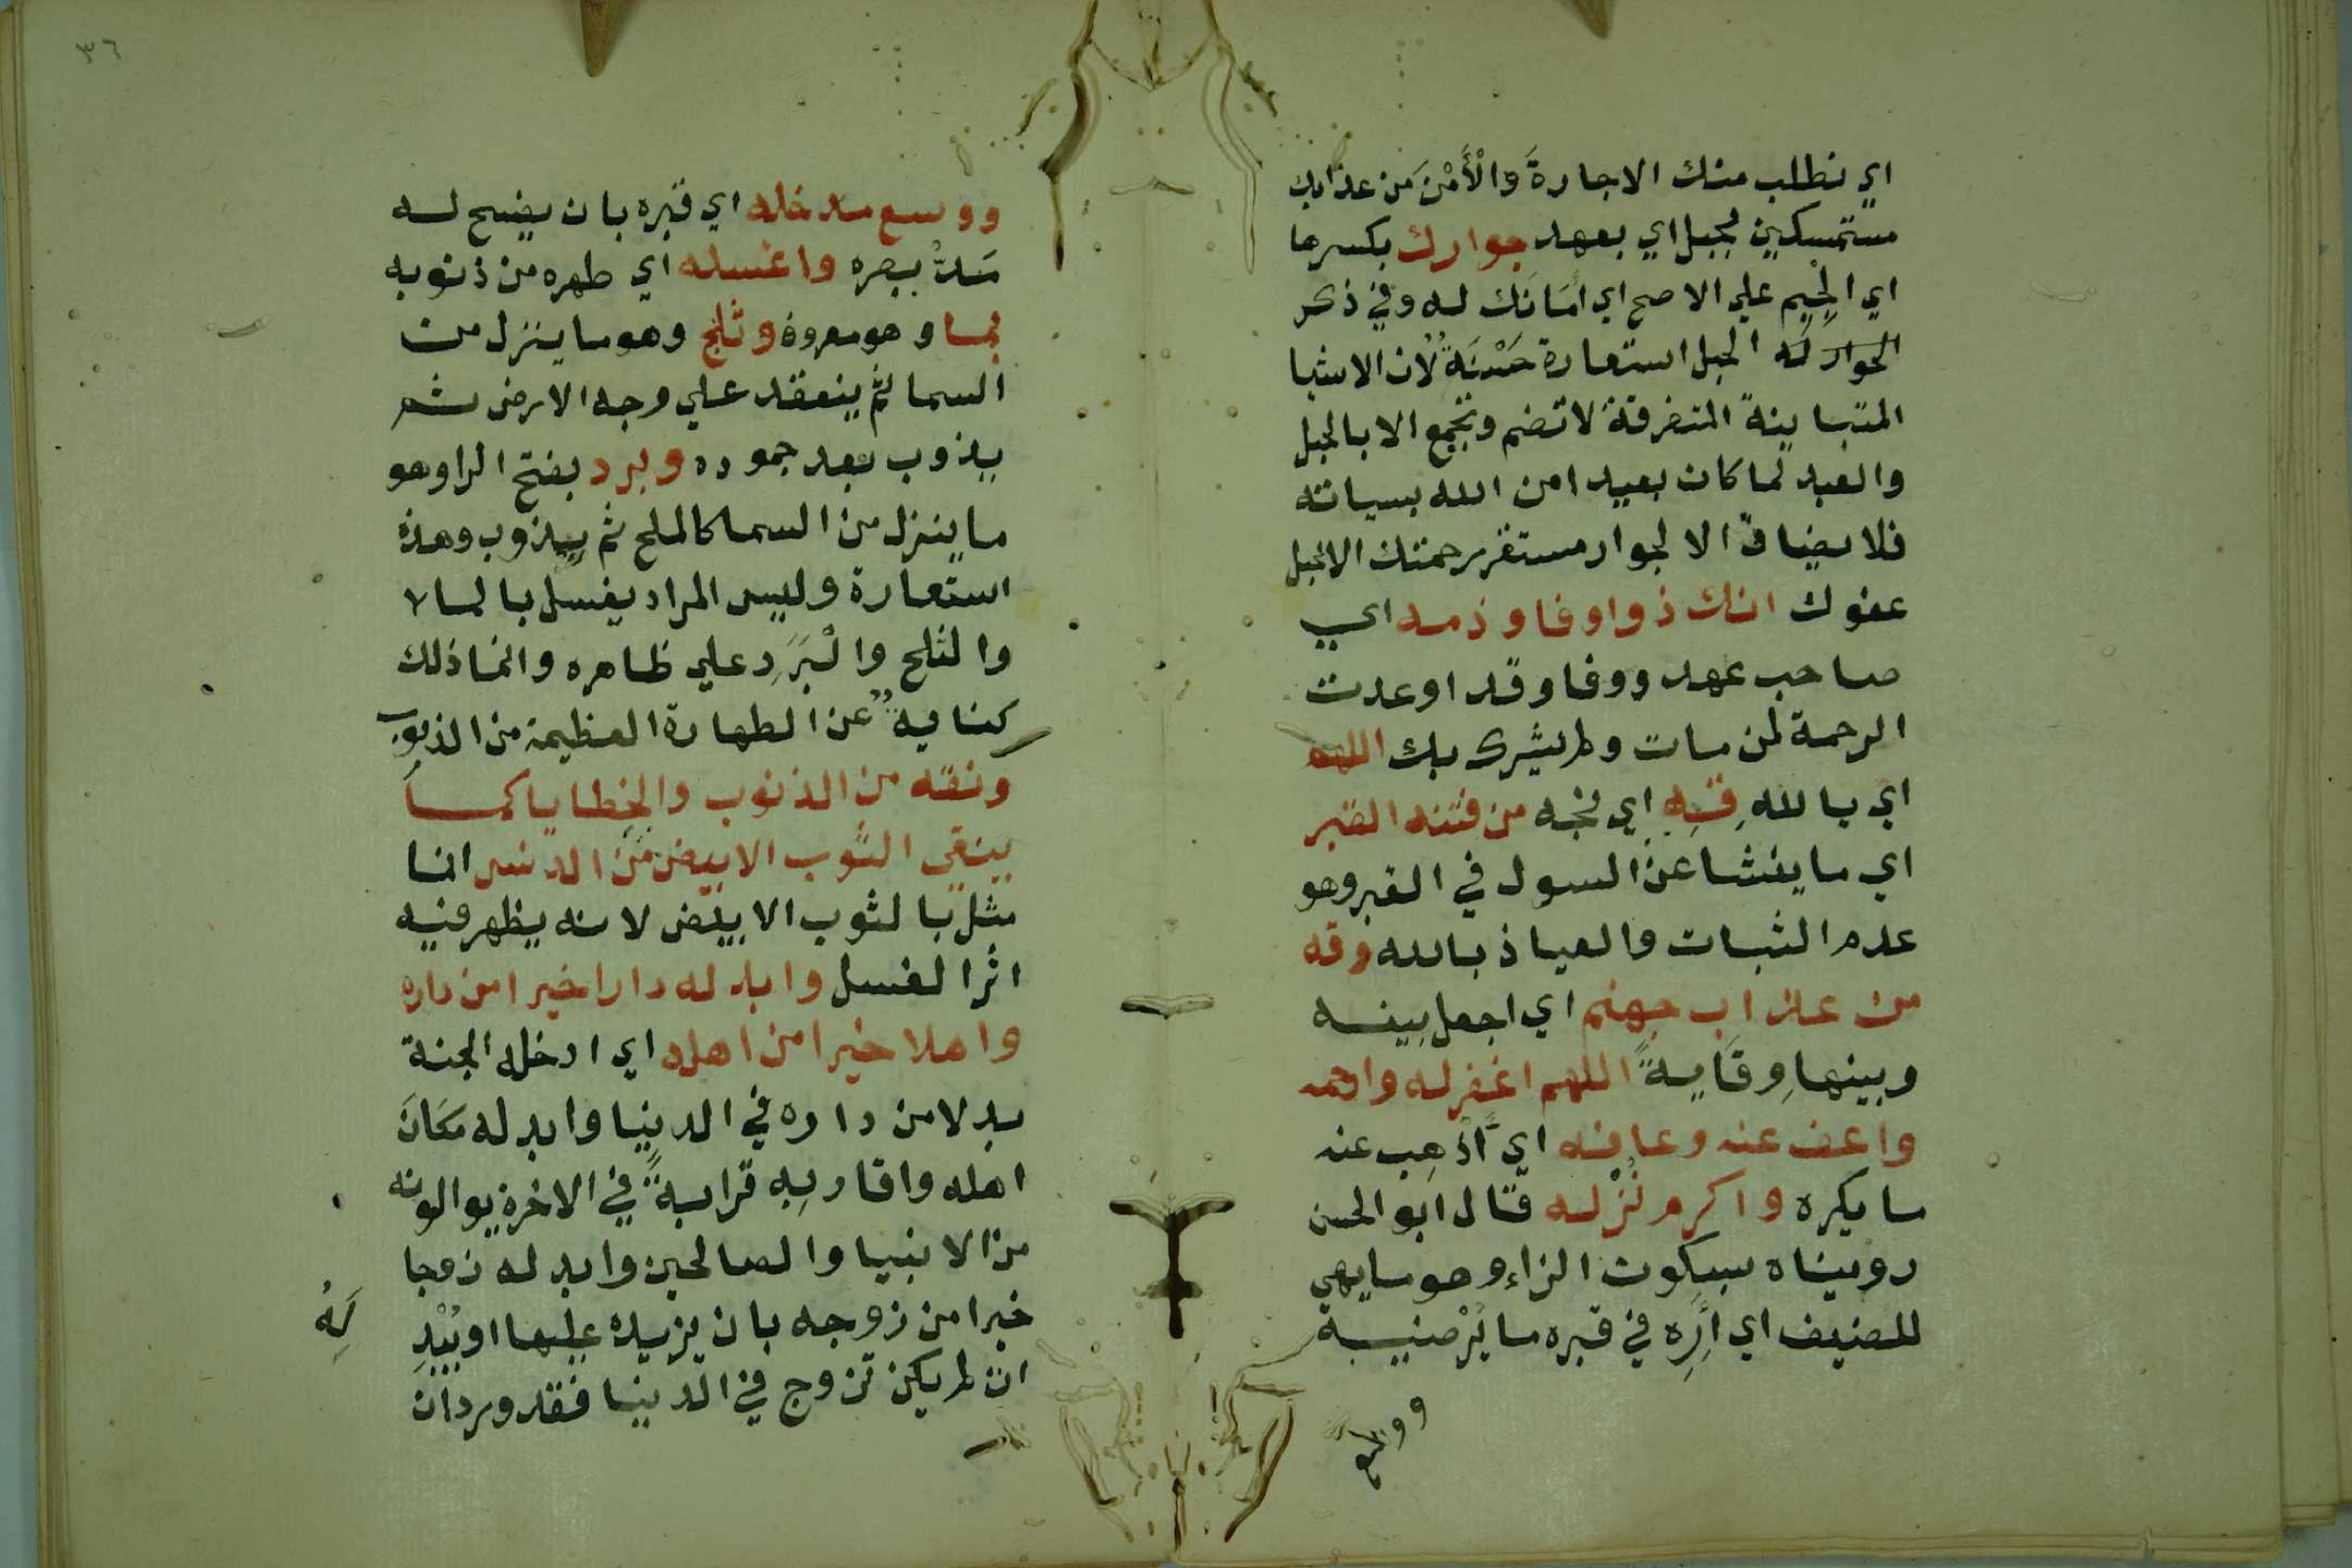 اي نطلب منك الاجارةَ وَالْأَمْنَ من عذابك
مستمسكين بحبل اي بعهد جوارك بكسرها
اي الجيم علي الاصح اي أمَانك له وفي ذكر
الجوار له الحبل استعارة حَسَنَةٌ لان الاشيا
المتباينة المتفرقة لا تضم وتجمع الا بالحبل
والعبد لما كان بعيدا من الله بسياته
فلا يضاف الا لجوار مستقر رحمتك الا بحبل
عفوك انك ذو اوفا وذمه اي
صاحب عهد ووفا وقد اوعدت
الرحمة لمن مات ولم يشرك بك اللهم
اي يا الله قِهِ اي نجه من فتنه القبر
اي ما ينشا عن السول في القبر وهو
عدم الثبات والعياذ بالله وقه
من عذاب جهنم اي اجعل بينه
وبينها وِقَايةً اللهم اغفر له وارحمه
واعف عنه وعافه اي أذْهِب عنه
ما يكره واكرم نُزْله قال ابو الحسن
رويناه بسكون الزاء وهو ما يهي
للضيف اي أَرِه في قبره ما يُرْضيه
ووسع
٣٦
ووسع مدخله اي قبره بان يفسح له
مَدَّ بصره واغسله اي طهره من ذنوبه
بما وهو معروف وثلج وهو ما ينزل من
السما ثم ينعقد علي وجه الارض ثم
يذوب بعد جموده وبرد بفتح الرا وهو
ما ينزل من السما كالملح ثم يذوب وهذه
استعارة وليس المراد يغسل بالما لا
والثلج والْبَرَدِ علي ظاهره وانما ذلك
كناية عن الطهارة العظيمة من الذنوب
ونقه من الذنوب والخطايا كما
ينقي الثوب الابيض من الدنس انما
مثل بالثوب الابيض لانه يظهر فيه
اثر الغسل وابدله دارا خيرا من داره
واهلا خيرا من اهله اي ادخله الجنة
بدلا من داره في الدنيا وابدله مَكَانَ
اهله واقاربِه قرابةً في الاخرة يوالونه
من الانبيا والصالحين وابدله زوجا
خيرا من زوجه بان يزيده عليها او يُبْدِ
لَهُ
ان لم يكن تزوج في الدنيا فقد ورد ان